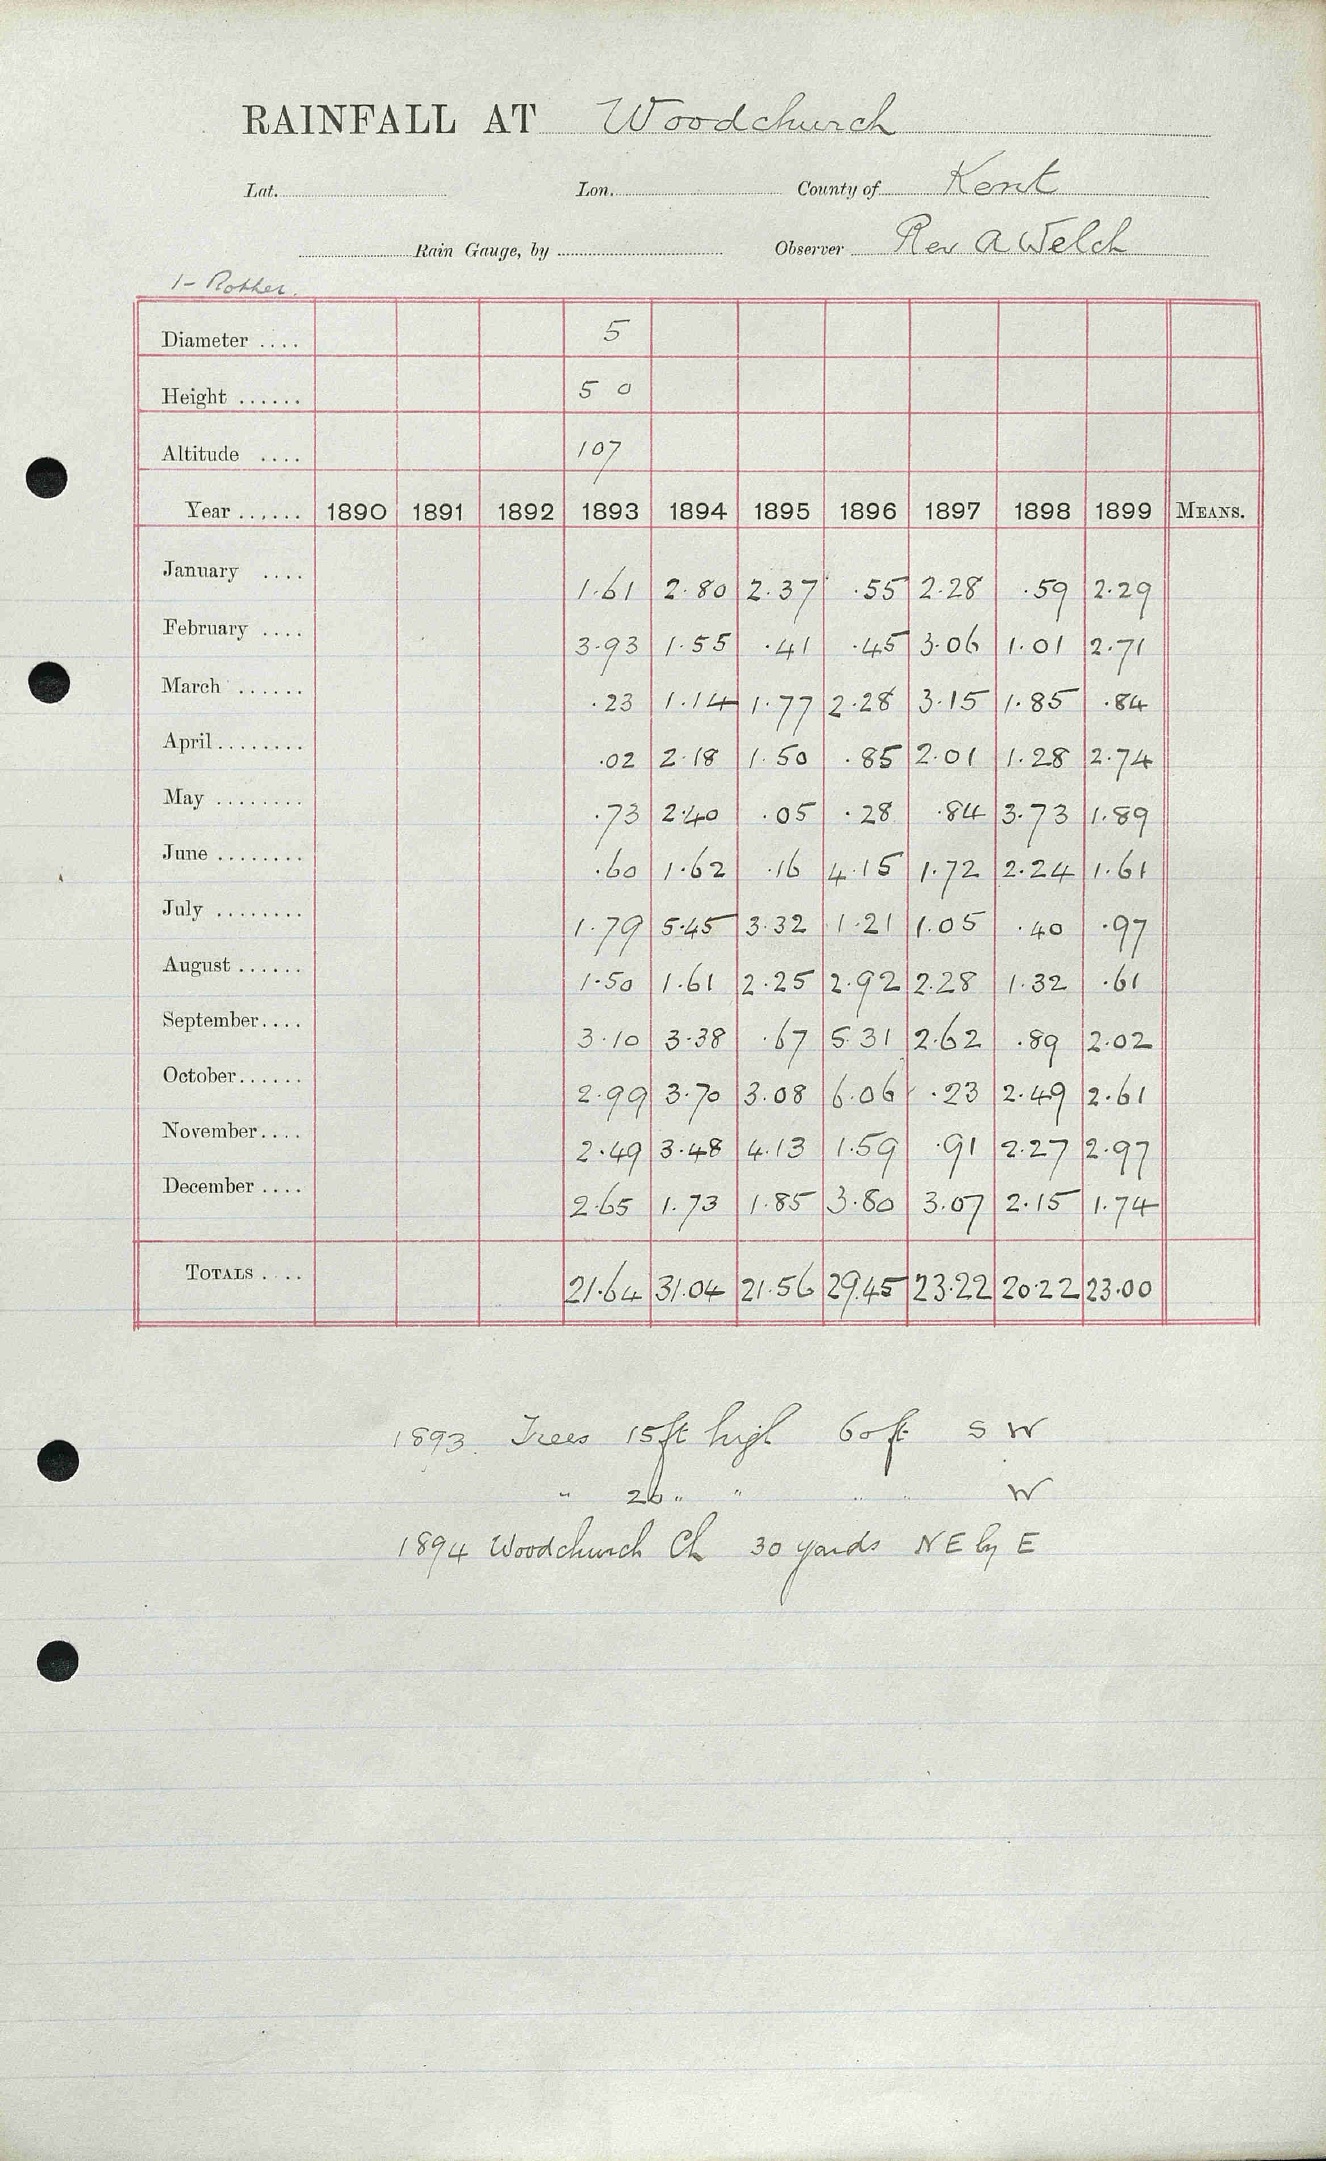 RAINFALL AT Woodchurch
Lat. Lon. County of Kent
Rain Gauge, by Observer Rev A Welch
1 - Rother.
Diameter .... 5
Height ...... 5 0
Altitude .... 107
Year ...... 1890 1891 1892 1893 1894 1895 1896 1897 1898 1899 MEANS.
January .... 1.61 2.80 2.37 .55 2.28 .59 2.29
February .... 3.93 1.55 .41 .45 3.06 1.01 2.71
March ...... .23 1.14 1.77 2.28 3.15 1.85 .84
April ........ .02 2.18 1.50 .85 2.01 1.28 2.74
May ........ .73 2.40 .05 .28 .84 3.73 1.89
June ........ .60 1.62 .16 4.15 1.72 2.24 1.61
July ........ 1.79 5.45 3.32 1.21 1.05 .40 .97
August ...... 1.50 1.61 2.25 2.92 2.28 1.32 .61
September .... 3.10 3.38 .67 5.31 2.62 .89 2.02
October ...... 2.99 3.70 3.08 6.06 .23 2.49 2.61
November .... 2.49 3.48 4.13 1.59 .91 2.27 2.97
December .... 2.65 1.73 1.85 3.80 3.07 2.15 1.74
TOTALS .... 21.64 31.04 21.56 29.45 23.22 20.22 23.00
1893. Trees 15ft high 60ft S W
" 20 " " " " W
1894 Woodchurch Ch 30 yards NE by E